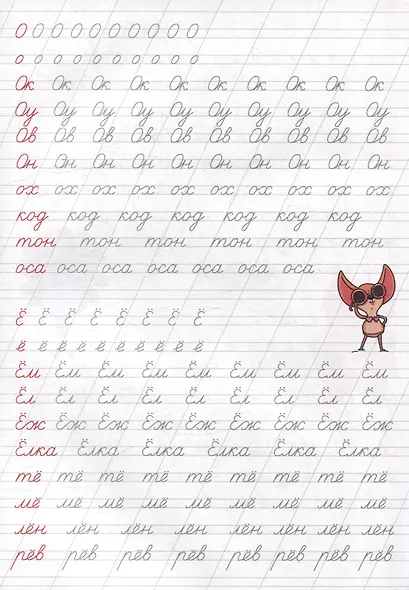 О О О О О О О О О О
о о о о о о о о о о
Ок Ок Ок Ок Ок Ок Ок Ок Ок Ок
Оу Оу Оу Оу Оу Оу Оу Оу Оу Оу
Ов Ов Ов Ов Ов Ов Ов Ов Ов Ов
Он Он Он Он Он Он Он Он Он Он
ох ох ох ох ох ох ох ох ох ох
код код код код код код код
тон тон тон тон тон тон
оса оса оса оса оса оса оса
Ё Ё Ё Ё Ё Ё Ё Ё
ё ё ё ё ё ё ё ё ё
Ём Ём Ём Ём Ём Ём Ём Ём Ём
Ёл Ёл Ёл Ёл Ёл Ёл Ёл Ёл Ёл
Ёж Ёж Ёж Ёж Ёж Ёж Ёж Ёж Ёж
Ёлка Ёлка Ёлка Ёлка Ёлка Ёлка
тё тё тё тё тё тё тё тё тё
мё мё мё мё мё мё мё мё мё
лён лён лён лён лён лён лён лён
рёв рёв рёв рёв рёв рёв рёв рёв